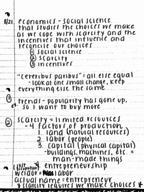 8/21 economics = social science
that studies the choices we make
as we cope with scarcity and the
incentives that influence and
reconcile our choices
① social science
② scarcity
③ incentives
"ceteribus paribus" = all else equal
look at one small change, keep
everything else the same
trend = popularity has gone up,
so I want to buy more
scarcity = limited resources
4 factors of production
1. land (natural resources)
2. labor (people)
3. capital (physical capital)
buildings, machines, etc.
man-made things
entrepreneurship
labor
actual name = entrepreneur
scarcity requires we make choices